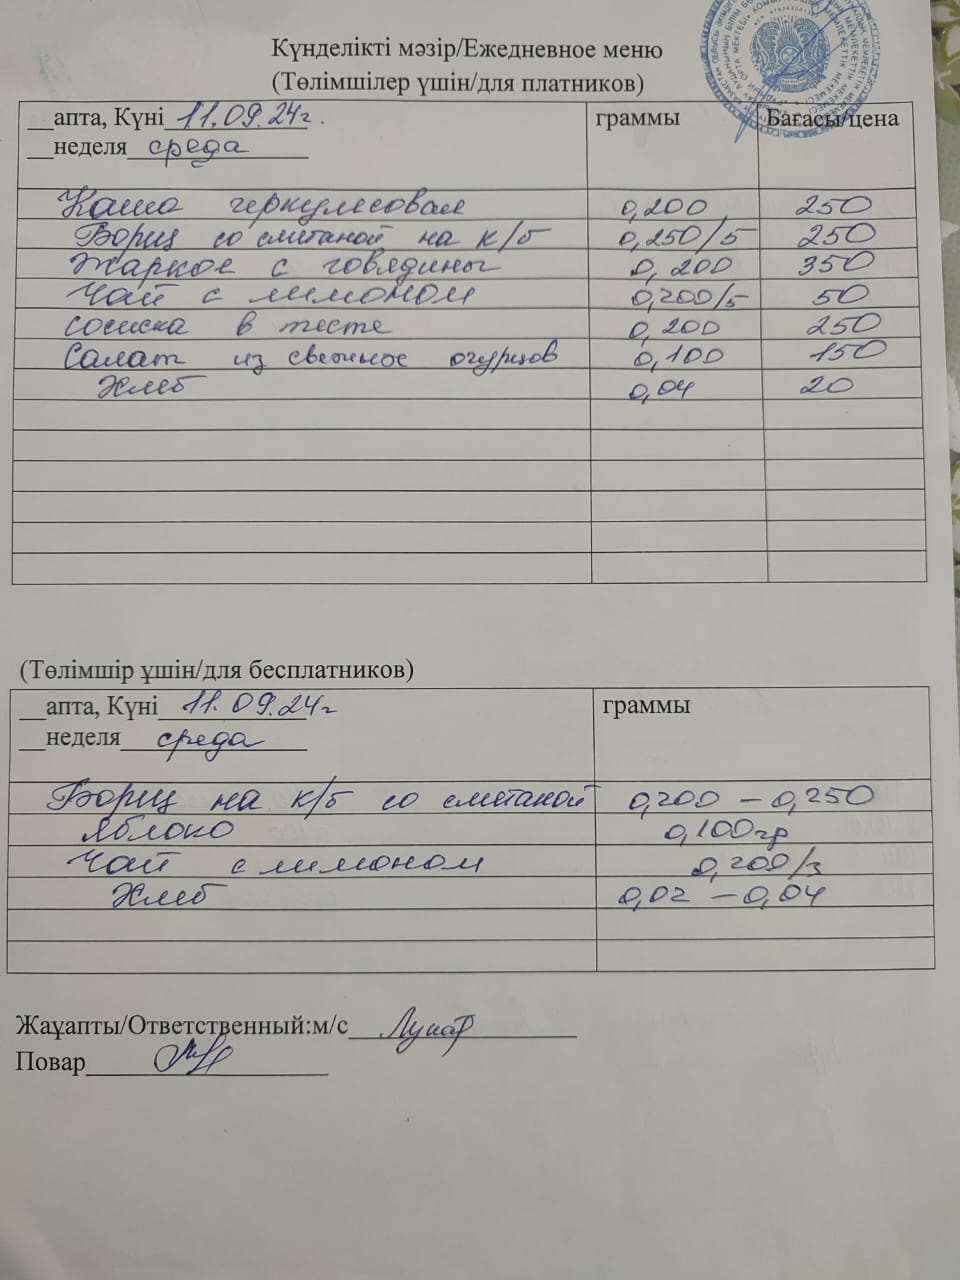 Күнделікті мәзір/Ежедневное меню
(Төлімшілер үшін/для платников)
__апта, Күні 11.09.24г. граммы Бағасы/цена
__неделя среда
Каша геркулесовая 0,200 250
Борщ со сметаной на к/б 0,250/5 250
Жаркое с говядины 0,200 350
Чай с лимоном 0,200/5 50
Сосиска в тесте 0,200 250
Салат из свежих огурцов 0,100 150
Хлеб 0,04 20
(Төлімшір үшін/для бесплатников)
__апта, Күні 11.09.24г граммы
__неделя среда
Борщ на к/б со сметаной 0,200 – 0,250
Яблоко 0,100гр
Чай с лимоном 0,200/3
Хлеб 0,02 – 0,04
Жаұапты/Ответственный:м/с
Повар